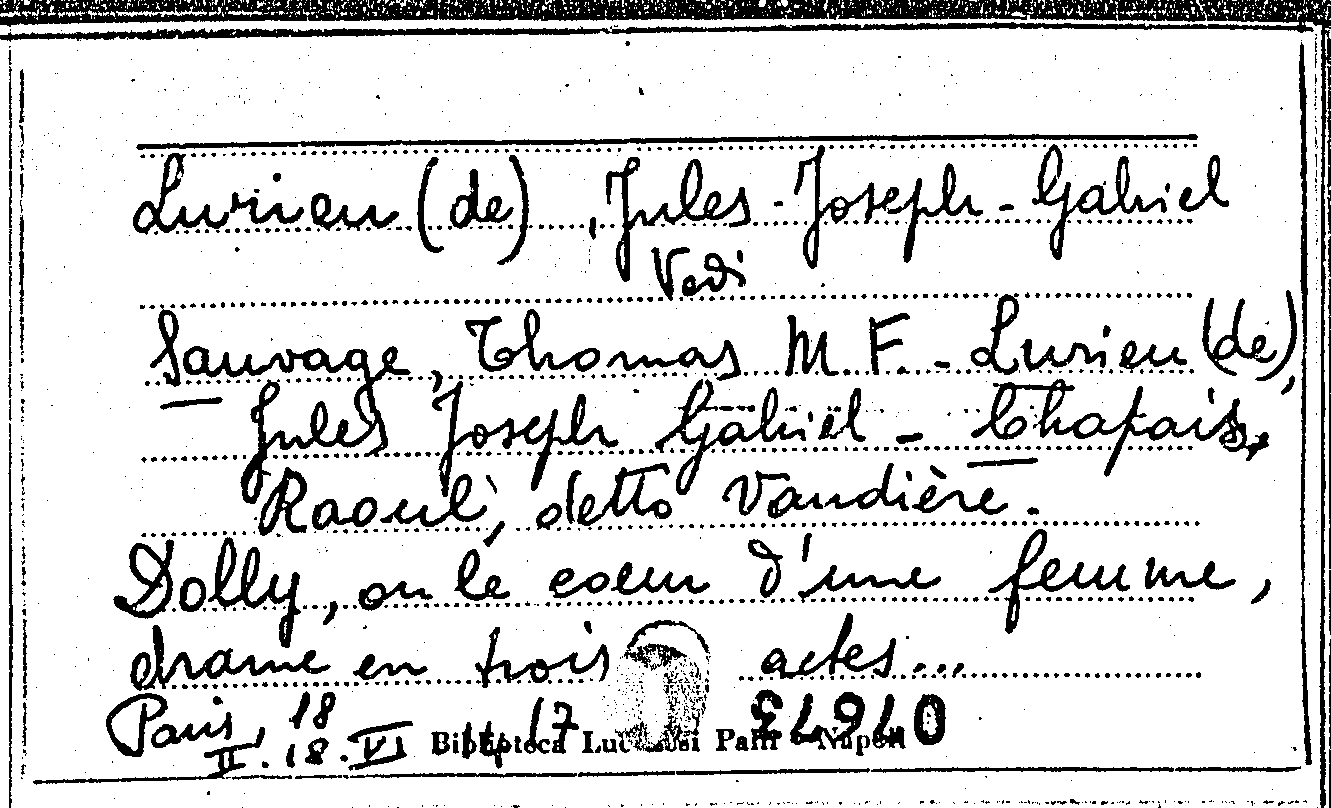 Lurieu (de), Jules-Joseph-Gabriel
Vedi
Sauvage, Thomas M. F. - Lurieu (de),
Jules Joseph Gabriel - Chapais,
Raoul, detto Vaudière.
Dolly, ou le coeur d'une femme,
drame en trois actes...
Paris, 18
II. 18. VI 14 17
Biblioteca Lucchesi Palli - Napoli